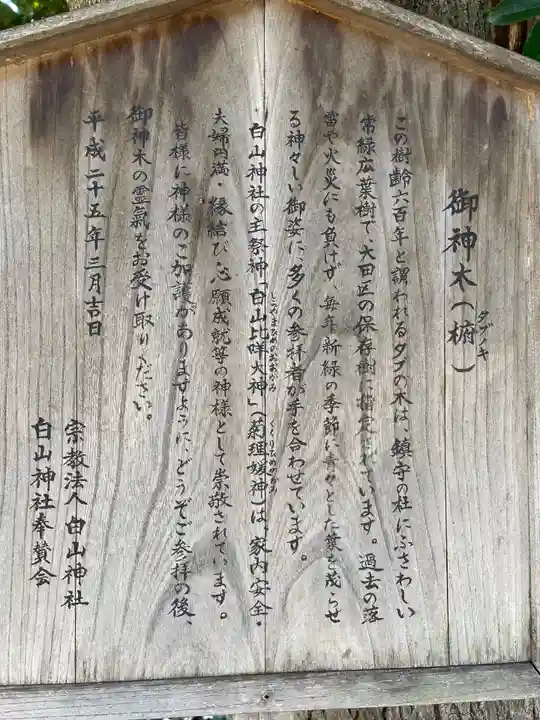 御神木(椨)
タブノキ
この樹齢六百年と謂われるタブの木は、鎮守の杜にふさわしい
常緑広葉樹で、大田区の保存樹に指定されています。過去の落
雷や火災にも負けず、毎年新緑の季節に青々とした葉を茂らせ
る神々しい御姿に、多くの参拝者が手を合わせています。
白山神社の主祭神「白山比咩大神」(菊理媛神)は、家内安全・
くくりひめのかみ
夫婦円満・縁結び・心願成就等の神様として崇敬されています。
皆様に神様のご加護がありますように、どうぞご参拝の後、
御神木の霊氣をお受け取りください。
平成二十五年三月吉日
宗教法人白山神社
白山神社奉賛会